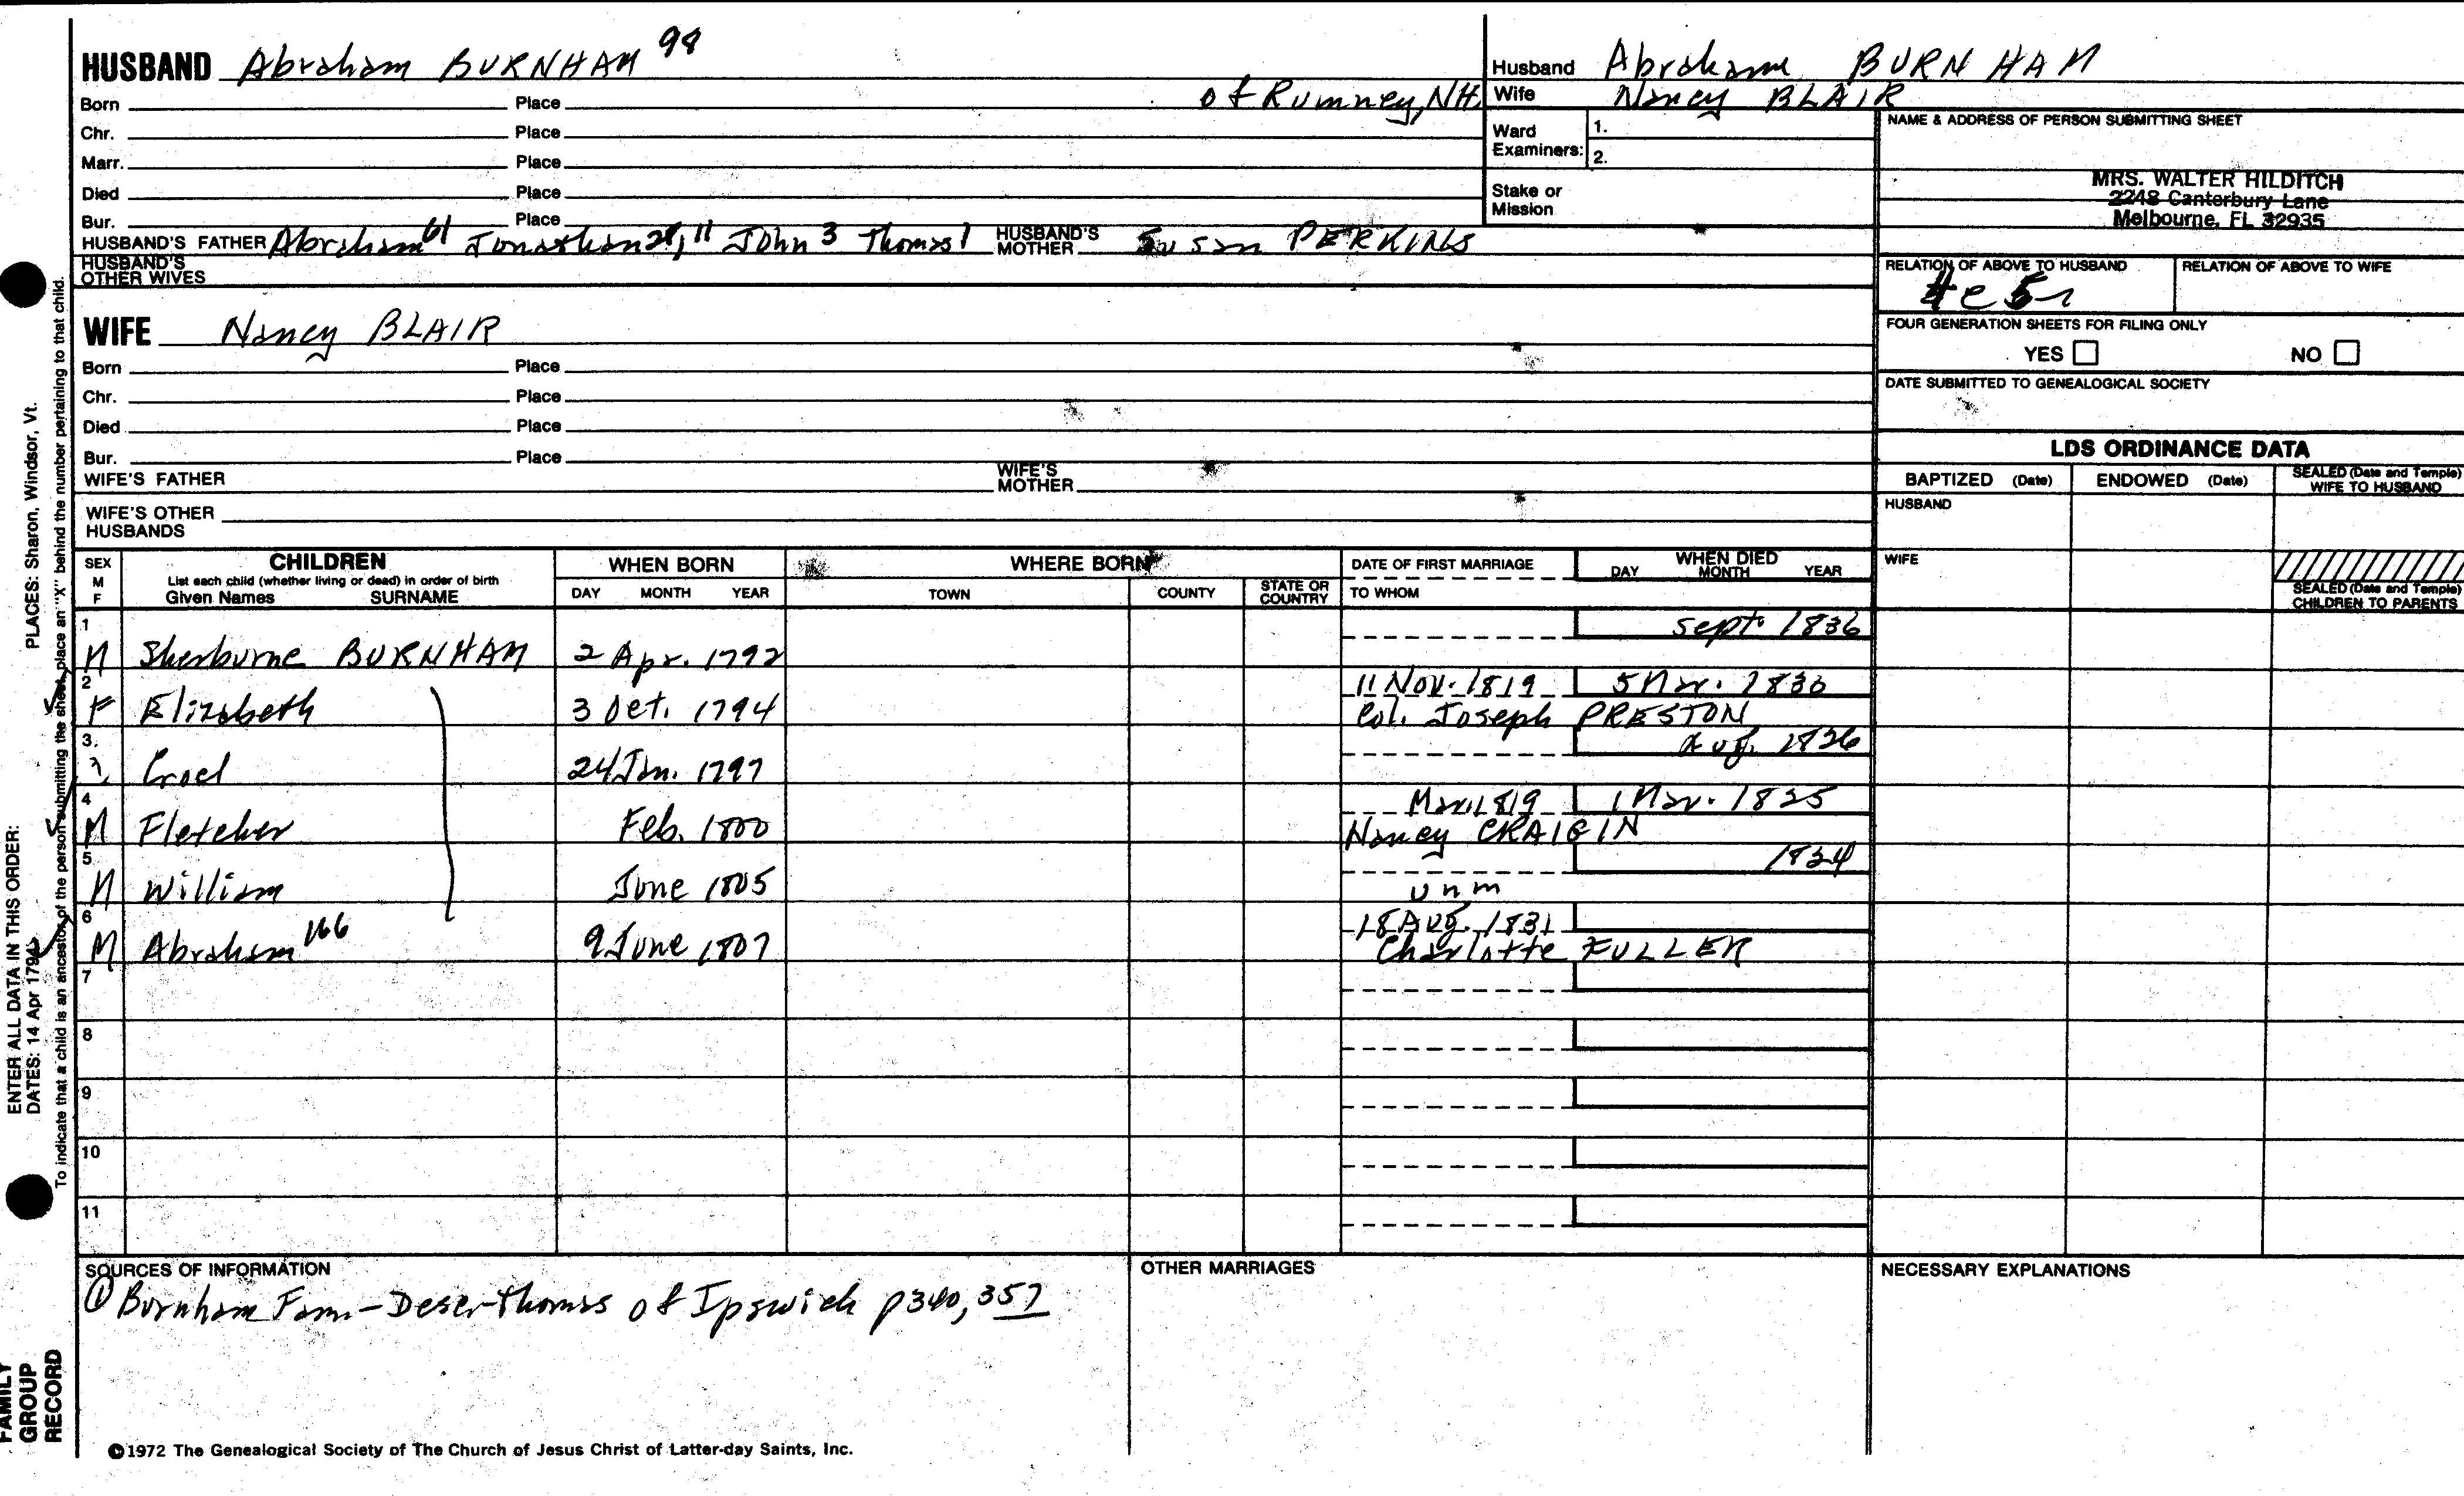 HUSBAND Abraham BURNHAM 98
Born Place of Rumney, NH.
Chr. Place
Marr. Place
Died Place
Bur. Place
HUSBAND'S FATHER Abraham 61 Jonathan 28, 11 John 3 Thomas 1 HUSBAND'S MOTHER Susan PERKINS
HUSBAND'S OTHER WIVES
WIFE Nancy BLAIR
Born Place
Chr. Place
Died Place
Bur. Place
WIFE'S FATHER WIFE'S MOTHER
WIFE'S OTHER HUSBANDS
Husband Abraham BURNHAM
Wife Nancy BLAIR
Ward Examiners: 1.
2.
Stake or Mission
NAME & ADDRESS OF PERSON SUBMITTING SHEET
MRS. WALTER HILDITCH
2248 Canterbury Lane
Melbourne, FL 32935
RELATION OF ABOVE TO HUSBAND RELATION OF ABOVE TO WIFE
FOUR GENERATION SHEETS FOR FILING ONLY
YES NO
DATE SUBMITTED TO GENEALOGICAL SOCIETY
LDS ORDINANCE DATA
BAPTIZED (Date) ENDOWED (Date) SEALED (Date and Temple) WIFE TO HUSBAND
HUSBAND
WIFE
SEALED (Date and Temple) CHILDREN TO PARENTS
SEX M F
CHILDREN
List each child (whether living or dead) in order of birth
Given Names SURNAME
WHEN BORN
DAY MONTH YEAR
WHERE BORN
TOWN COUNTY STATE OR COUNTRY
DATE OF FIRST MARRIAGE
TO WHOM
WHEN DIED
DAY MONTH YEAR
1 Sept. 1836
M Sherburne BURNHAM 2 Apr. 1792
2 11 Nov. 1819 5 Mar. 1830
F Elizabeth 3 Oct. 1794 Col. Joseph PRESTON
3. Aug. 1826
24 Jan. 1797
4 Mar. 1819 1 Mar. 1825
M Fletcher Feb. 1800 Nancy CRAIGIN
5 1834
M William June 1805 unm
6 18 Aug. 1831
M Abraham 166 9 June 1807 Charlotte FULLER
7
8
9
10
11
SOURCES OF INFORMATION
① Burnham Fam-Desc-Thomas of Ipswich p340, 357
OTHER MARRIAGES
NECESSARY EXPLANATIONS
©1972 The Genealogical Society of The Church of Jesus Christ of Latter-day Saints, Inc.
ENTER ALL DATA IN THIS ORDER:
DATES: 14 Apr 1794
PLACES: Sharon, Windsor, Vt.
To indicate that a child is an ancestor of the person submitting the sheet, place an "X" behind the number pertaining to that child.
FAMILY GROUP RECORD